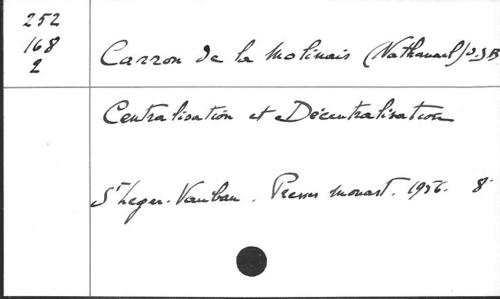 252
168
2
Carron de la Molinais (Nathanael) O.S.B
Centralisation et Décentralisation
St Leger-Vauban. Presses monast. 1956. 8°